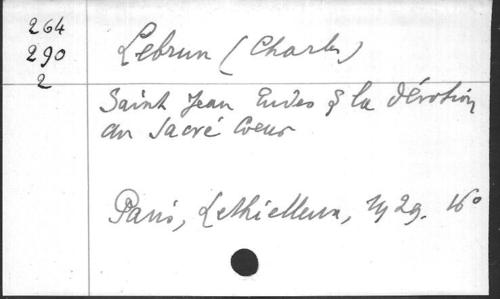 264
290
2
Lebrun (Charles)
Saint Jean Eudes & la dévotion
au Sacré Coeur
Paris, Lethielleux, 1929. 16°